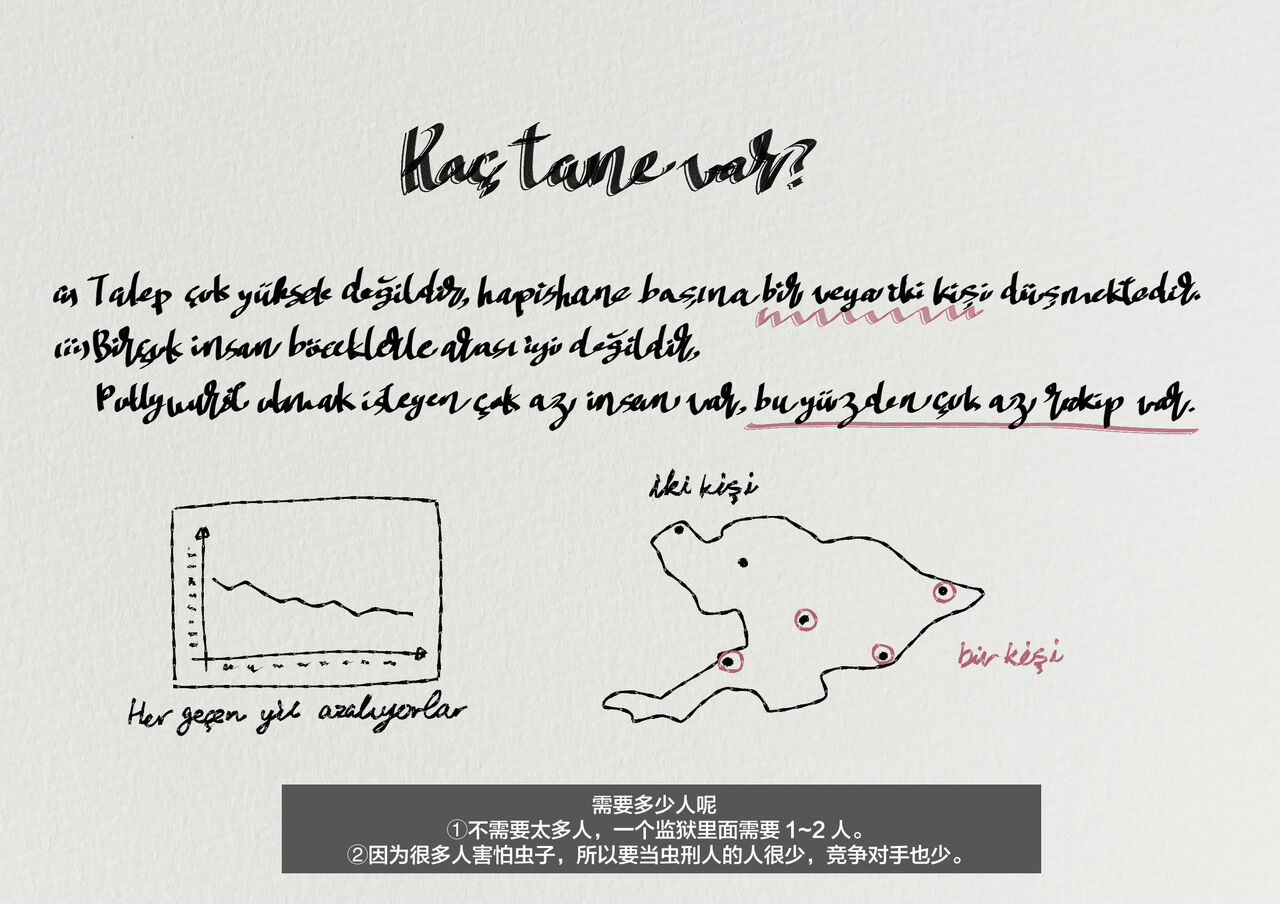 Kaç tane var?
(i) Talep çok yüksek değildir, hapishane başına bir veya iki kişi düşmektedir.
(ii) Birçok insan böceklerle arası iyi değildir,
Pollywurst olmak isteyen çok az insan var, bu yüzden çok az rakip var.
iki kişi
bir kişi
Her geçen yıl azalıyorlar
需要多少人呢
①不需要太多人，一个监狱里面需要 1~2 人。
②因为很多人害怕虫子，所以要当虫刑人的人很少，竞争对手也少。